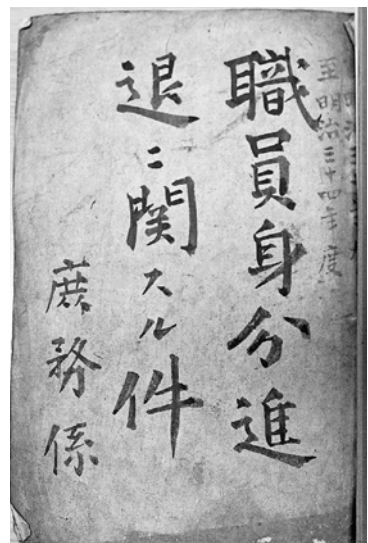 至明治三十四年度
職員身分進
退ニ関スル件
庶務係